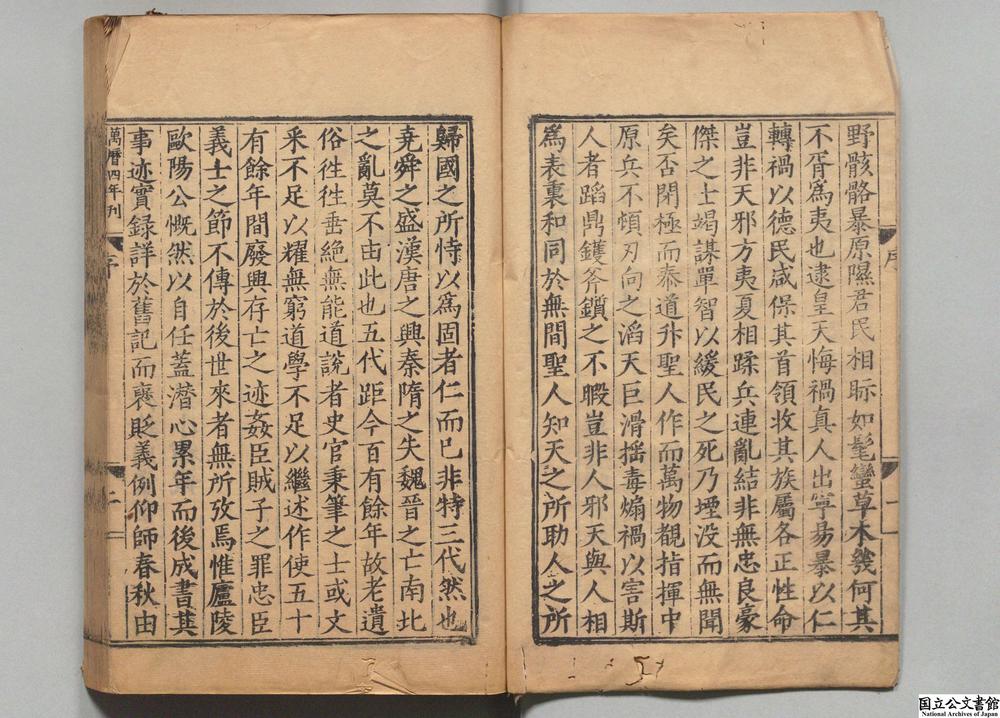 野骸骼暴原隰君民相眎如髦蠻草木幾何其
不胥爲夷也逮皇天悔禍真人出寧易暴以仁
轉禍以德民咸保其首領收其族屬各正性命
豈非天邪方夷夏相蹂兵連亂結非無忠良豪
傑之士竭謀單智以緩民之死乃堙没而無聞
矣否閉極而泰道升聖人作而萬物覩指揮中
原兵不頓刃向之滔天巨滑揺毒煽禍以害斯
人者蹈鼎鑊斧鑕之不暇豈非人邪天與人相
爲表裏和同於無間聖人知天之所助人之所
序
一
歸國之所恃以爲固者仁而已非特三代然也
堯舜之盛漢唐之興秦隋之失魏晉之亡南北
之亂莫不由此也五代距今百有餘年故老遺
俗徃徃垂絶無能道說者史官秉筆之士或文
采不足以耀無窮道學不足以繼述作使五十
有餘年間廢興存亡之迹姦臣賊子之罪忠臣
義士之節不傳於後世來者無所攷焉惟廬陵
歐陽公慨然以自任蓋潛心累年而後成書其
事迹實録詳於舊記而褒貶義例仰師春秋由
萬曆四年刊
序
二
国立公文書館
National Archives of Japan